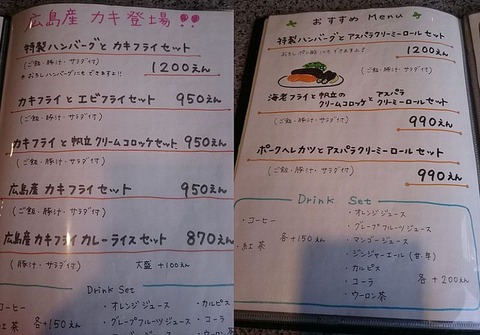 広島産 カキ登場!!
特製ハンバーグと カキフライセット
(ご飯・豚汁・サラダ付)
1200えん
※おろしハンバーグにも できますよ!!
カキフライと エビフライセット 950えん
(ご飯・豚汁・サラダ付)
カキフライと 帆立クリームコロッケセット 950えん
(ご飯・豚汁・サラダ付)
広島産 カキフライセット 950えん
(ご飯・豚汁・サラダ付)
広島産 カキフライ カレーライスセット 870えん
(豚汁・サラダ付) 大盛 +100えん
Drink Set
・コーヒー
・紅茶
各+150えん
・オレンジジュース
・グレープフルーツジュース
・カルピス
・コーラ
・ウーロン茶
おすすめ Menu
特製ハンバーグとアスパラクリーミーロールセット
1200えん
(ご飯・豚汁・サラダ付)
海老フライと帆立の
クリームコロッケと アスパラ
クリーミーロールセット
990えん
(ご飯・豚汁・サラダ付)
ポークヘレカツとアスパラクリーミーロールセット
990えん
(ご飯・豚汁・サラダ付)
Drink Set
・コーヒー
・紅茶
各+150えん
・オレンジジュース
・グレープフルーツジュース
・マンゴージュース
・ジンジャーエール(甘・辛)
・カルピス
・コーラ
・ウーロン茶
各+200えん